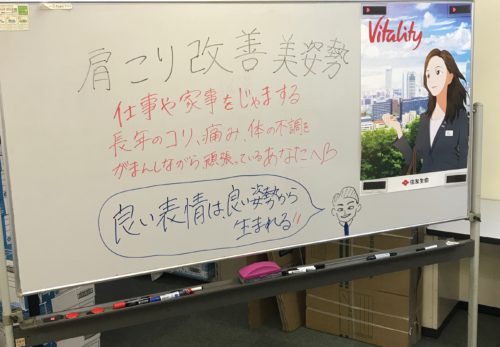 肩こり改善美姿勢
仕事や家事をじゃまする
長年のコリ、痛み、体の不調を
がまんしながら、頑張っているあなたへ
良い表情は良い姿勢から
生まれる!!
Vitality
住友生命